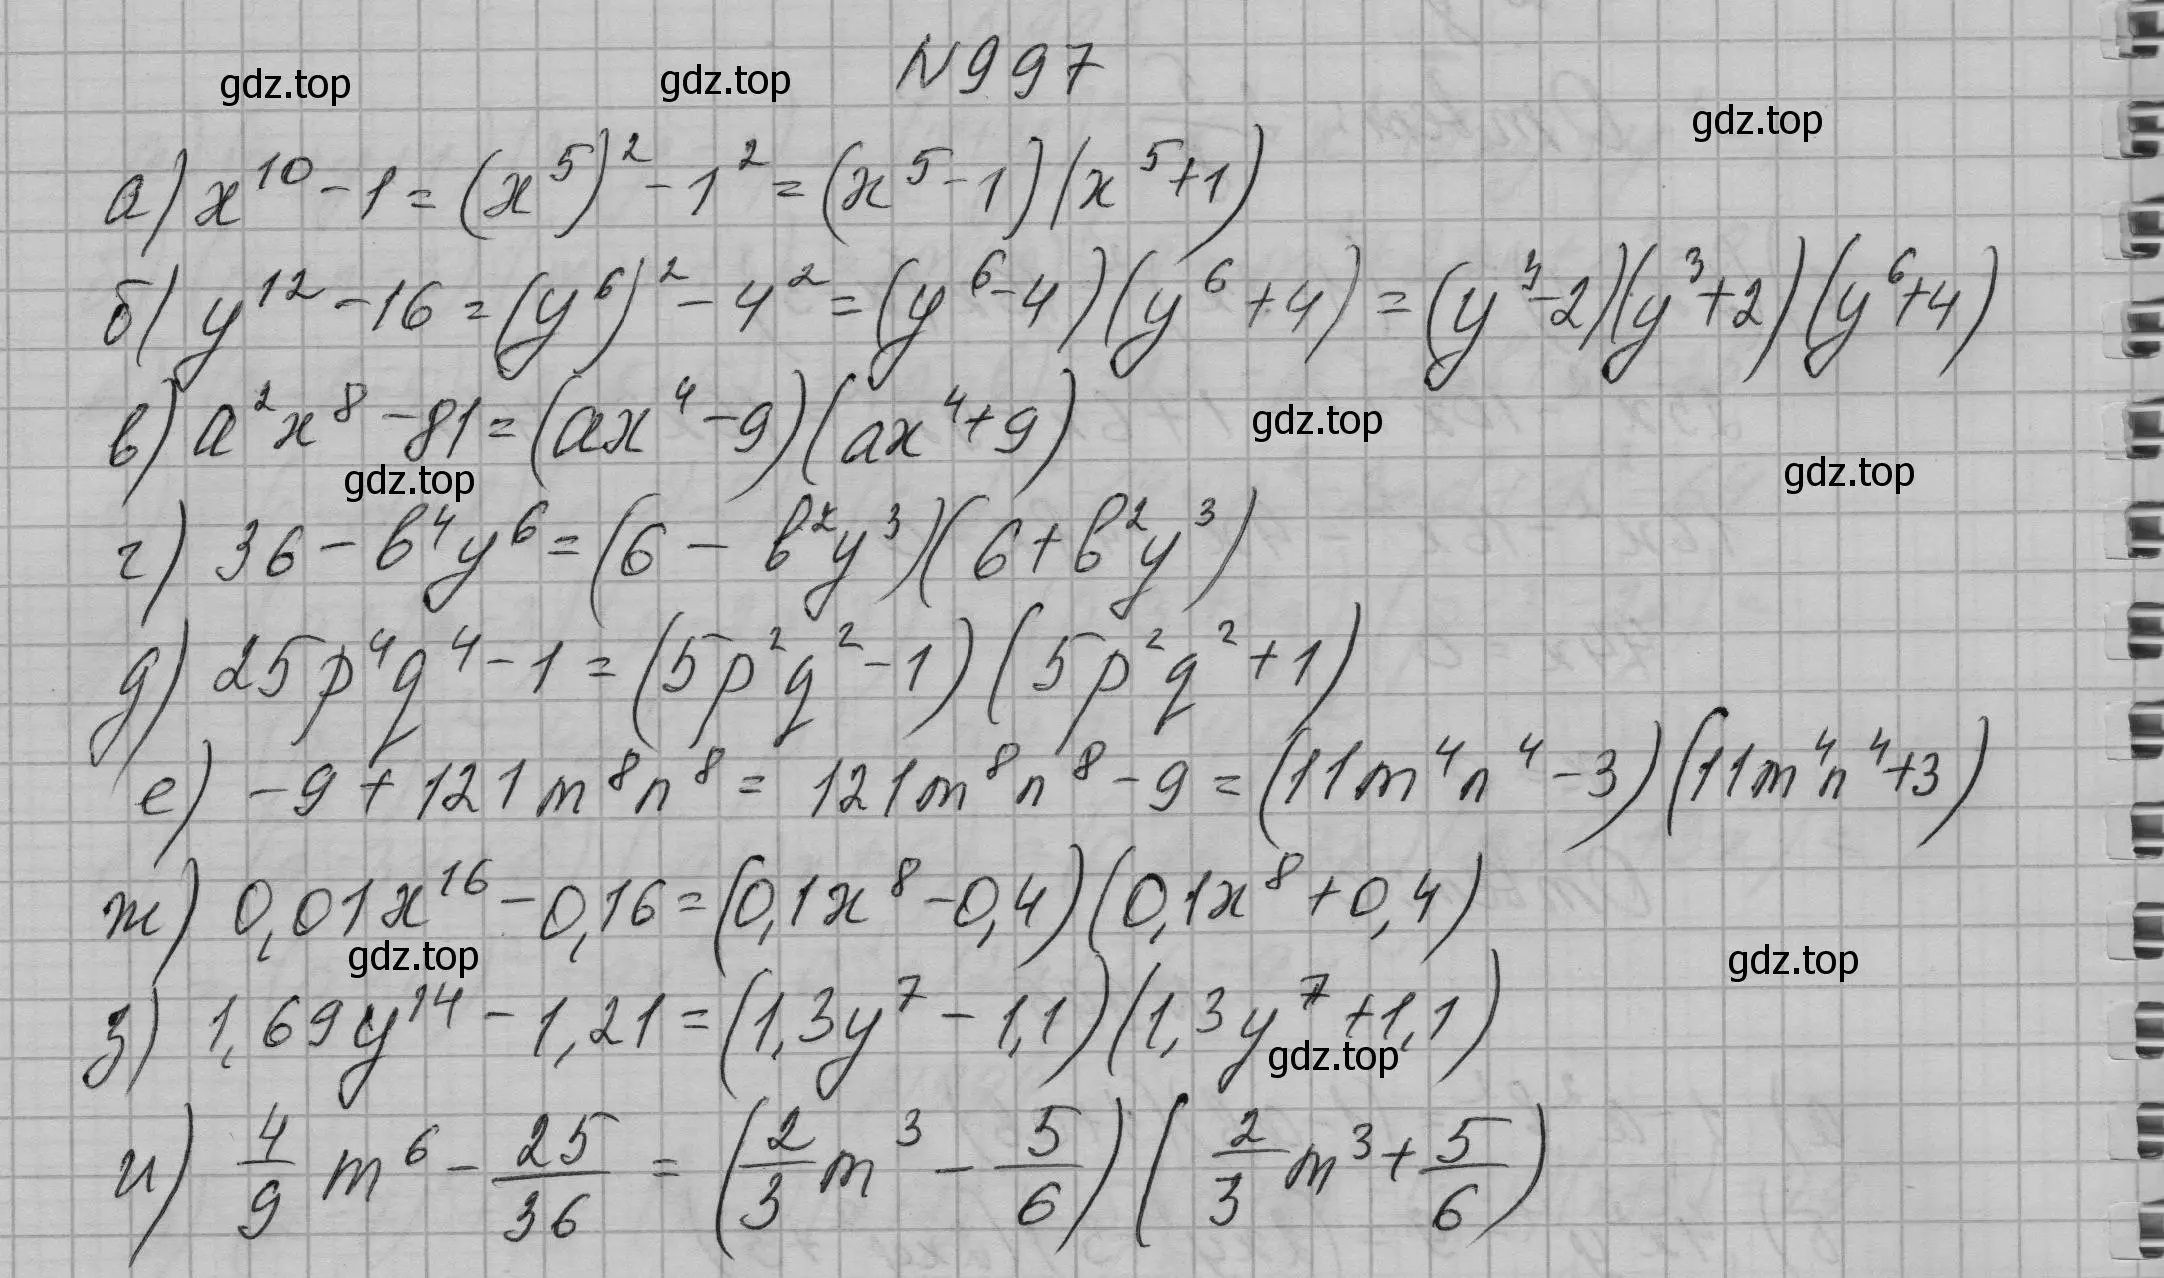 N997
gdz.top gdz.top gdz.top
а) x¹⁰ - 1 = (x⁵)² - 1² = (x⁵ - 1)(x⁵ + 1)
б) y¹² - 16 = (y⁶)² - 4² = (y⁶ - 4)(y⁶ + 4) = (y³ - 2)(y³ + 2)(y⁶ + 4)
в) a²x⁸ - 81 = (ax⁴ - 9)(ax⁴ + 9)
gdz.top gdz.top gdz.top
г) 36 - b⁴y⁶ = (6 - b²y³)(6 + b²y³)
д) 25p⁴q⁴ - 1 = (5p²q² - 1)(5p²q² + 1)
е) -9 + 121m⁸n⁸ = 121m⁸n⁸ - 9 = (11m⁴n⁴ - 3)(11m⁴n⁴ + 3)
ж) 0,01x¹⁶ - 0,16 = (0,1x⁸ - 0,4)(0,1x⁸ + 0,4)
gdz.top gdz.top
з) 1,69y¹⁴ - 1,21 = (1,3y⁷ - 1,1)(1,3y⁷ + 1,1)
gdz.top
и) 4/9 m⁶ - 25/36 = (2/3 m³ - 5/6)(2/3 m³ + 5/6)